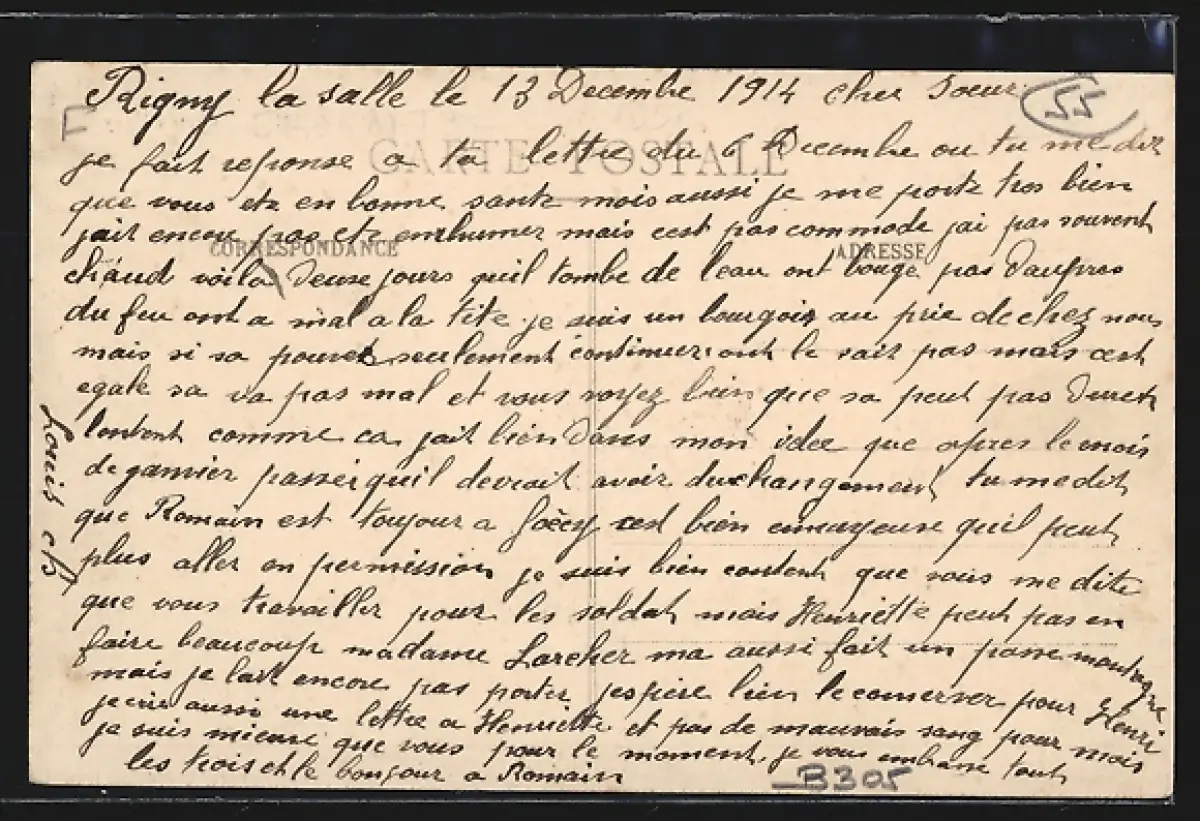 Rigny la salle le 13 Decembre 1914 cher Soeur
55
CARTE POSTALE
je fait reponse a ta lettre du 6 Decembre ou tu me dit
que vous ete en bonne sante mois aussi je me porte tres bien
jait encore pas ete enrhumer mais cest pas commode jai pas souvent
CORRESPONDANCE
ADRESSE
chaud voila deuse jours quil tombe de leau ont bouge pas daupres
du feu ont a mal a la tite je suis un bourgois au prie de chez nous
mais si sa pouvet seulement continuer ont le sait pas mais cest
egale sa va pas mal et vous voyez bien que sa peut pas duret
lontent comme ca jait bien dans mon idee que apres le mois
de ganvier passer quil devrait avoir du changement tu me dit
que Romain est toujour a cest bien ennuyeuse quil peut
plus aller en permission je suis bien content que vous me dite
que vous travailler pour les soldat mais Henriette peut pas en
faire beaucoup madame Larcher ma aussi fait un passe montagne
mais je lait encore pas porter jespere bien le conserver pour Henri
jecrie aussi une lettre a Henriette et pas de mauvais sang pour mois
je suis mieuse que vous pour le moment je vous embrasse tout
les trois et le bonjour a Romain
Louis
B305